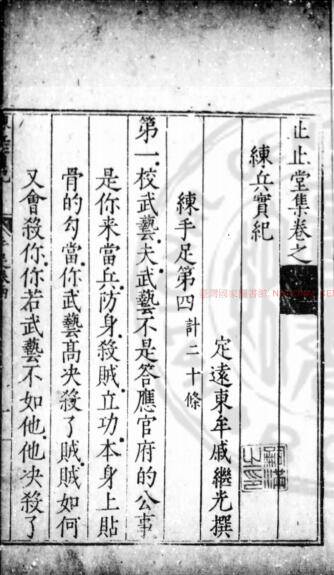 止止堂集卷之
練兵實紀
定遠東牟戚繼光撰
練手足第四計二十條
第一校武藝夫武藝不是答應官府的公事
是你来當兵防身殺賊立功本身上貼
骨的勾當你武藝高决殺了賊賊如何
又會殺你你若武藝不如他他决殺了